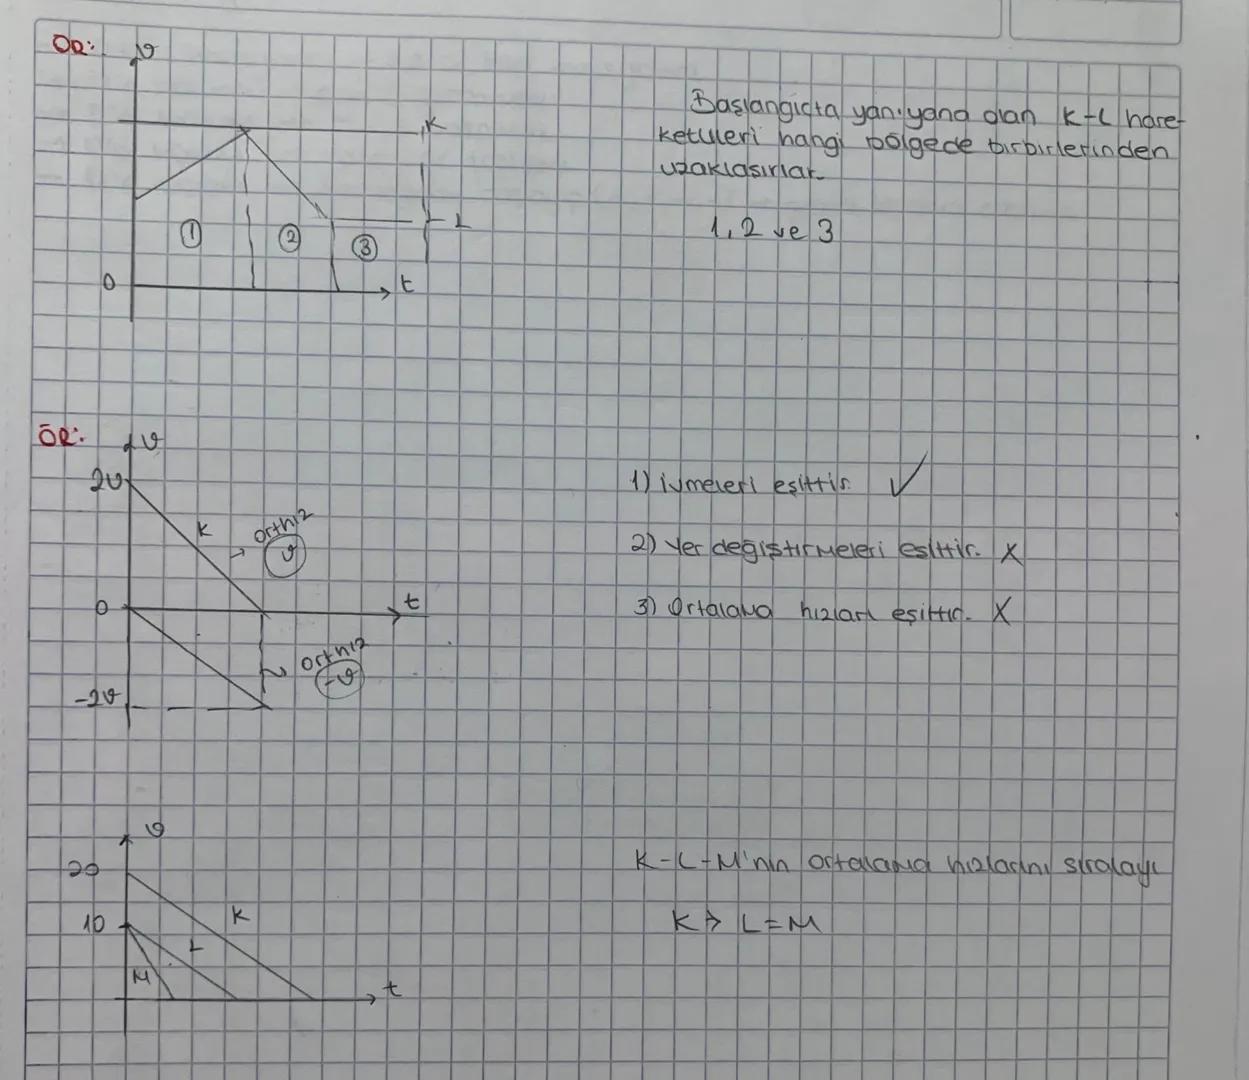 ÖR:
v
K
L
① ② ③
0
t
Başlangıçta yanyana olan K-L hare-
ketlileri hangi bölgede birbirlerinden
uzaklaşırlar.
1, 2 ve 3
ÖR:
v
2v
K
orthız
v
0
t
orthız
-v
-2v
1) ivmeleri eşittir. ✓
2) Yer değiştirmeleri eşittir. X
3) Ortalama hızları eşittir. X
v
20
10
K
L
M
t
K-L-M'nin ortalama hızlarını sıralayı
K > L = M